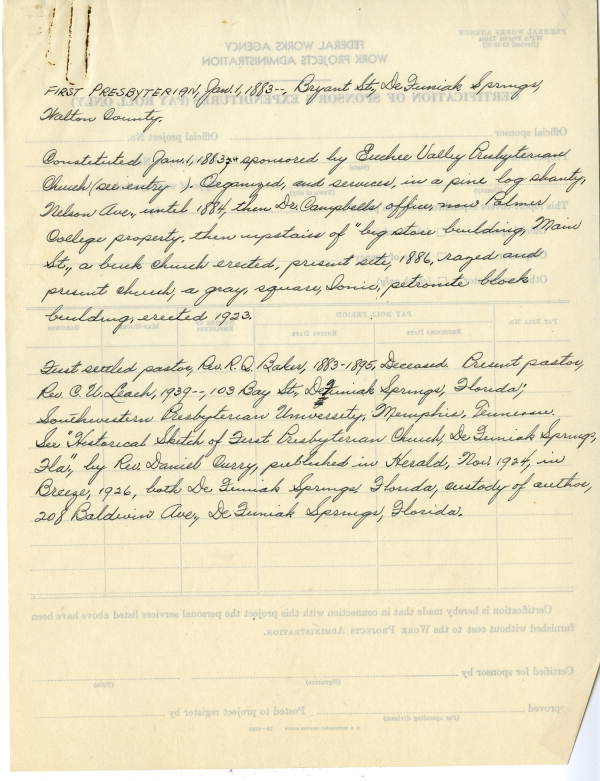 FIRST PRESBYTERIAN, Jan. 1, 1883--, Bryant St., De Funiak Springs,
Walton County.
Constituted Jan. 1, 1883, sponsored by Euchee Valley Presbyterian
Church (see entry   ). Organized, and services, in a pine log shanty,
Nelson Ave., until 1884, then Dr. Campbells office, now Palmer
College property, then upstairs of "big store building, Main
St., a buck church erected, present site, 1886, razed and
present church, a gray, square, Ionic, petronite block
building, erected 1923.
First settled pastor, Rev. R. Q. Baker, 1883-1895, Deceased. Present pastor,
Rev. C. U. Leach, 1939--, 103 Bay St., De Funiak Springs, Florida;
Southwestern Presbyterian University, Memphis, Tennessee.
See "Historical Sketch of First Presbyterian Church, De Funiak Springs,
Fla", by Rev. Daniel Curry, published in Herald, Nov. 1924, in
Breeze, 1926, both De Funiak Springs, Florida, custody of author,
208 Baldwin Ave., De Funiak Springs, Florida.
FEDERAL WORKS AGENCY
WORK PROJECTS ADMINISTRATION
CERTIFICATION OF SPONSOR EXPENDITURE (PAY ROLL ONLY)
Official sponsor
Official project No.
PAY ROLL PERIOD
Certification is hereby made that in connection with this project the personal services listed above have been
furnished without cost to the WORK PROJECTS ADMINISTRATION.
Certified for sponsor by
(Signature)
(Title)
Approved
Posted to project register by